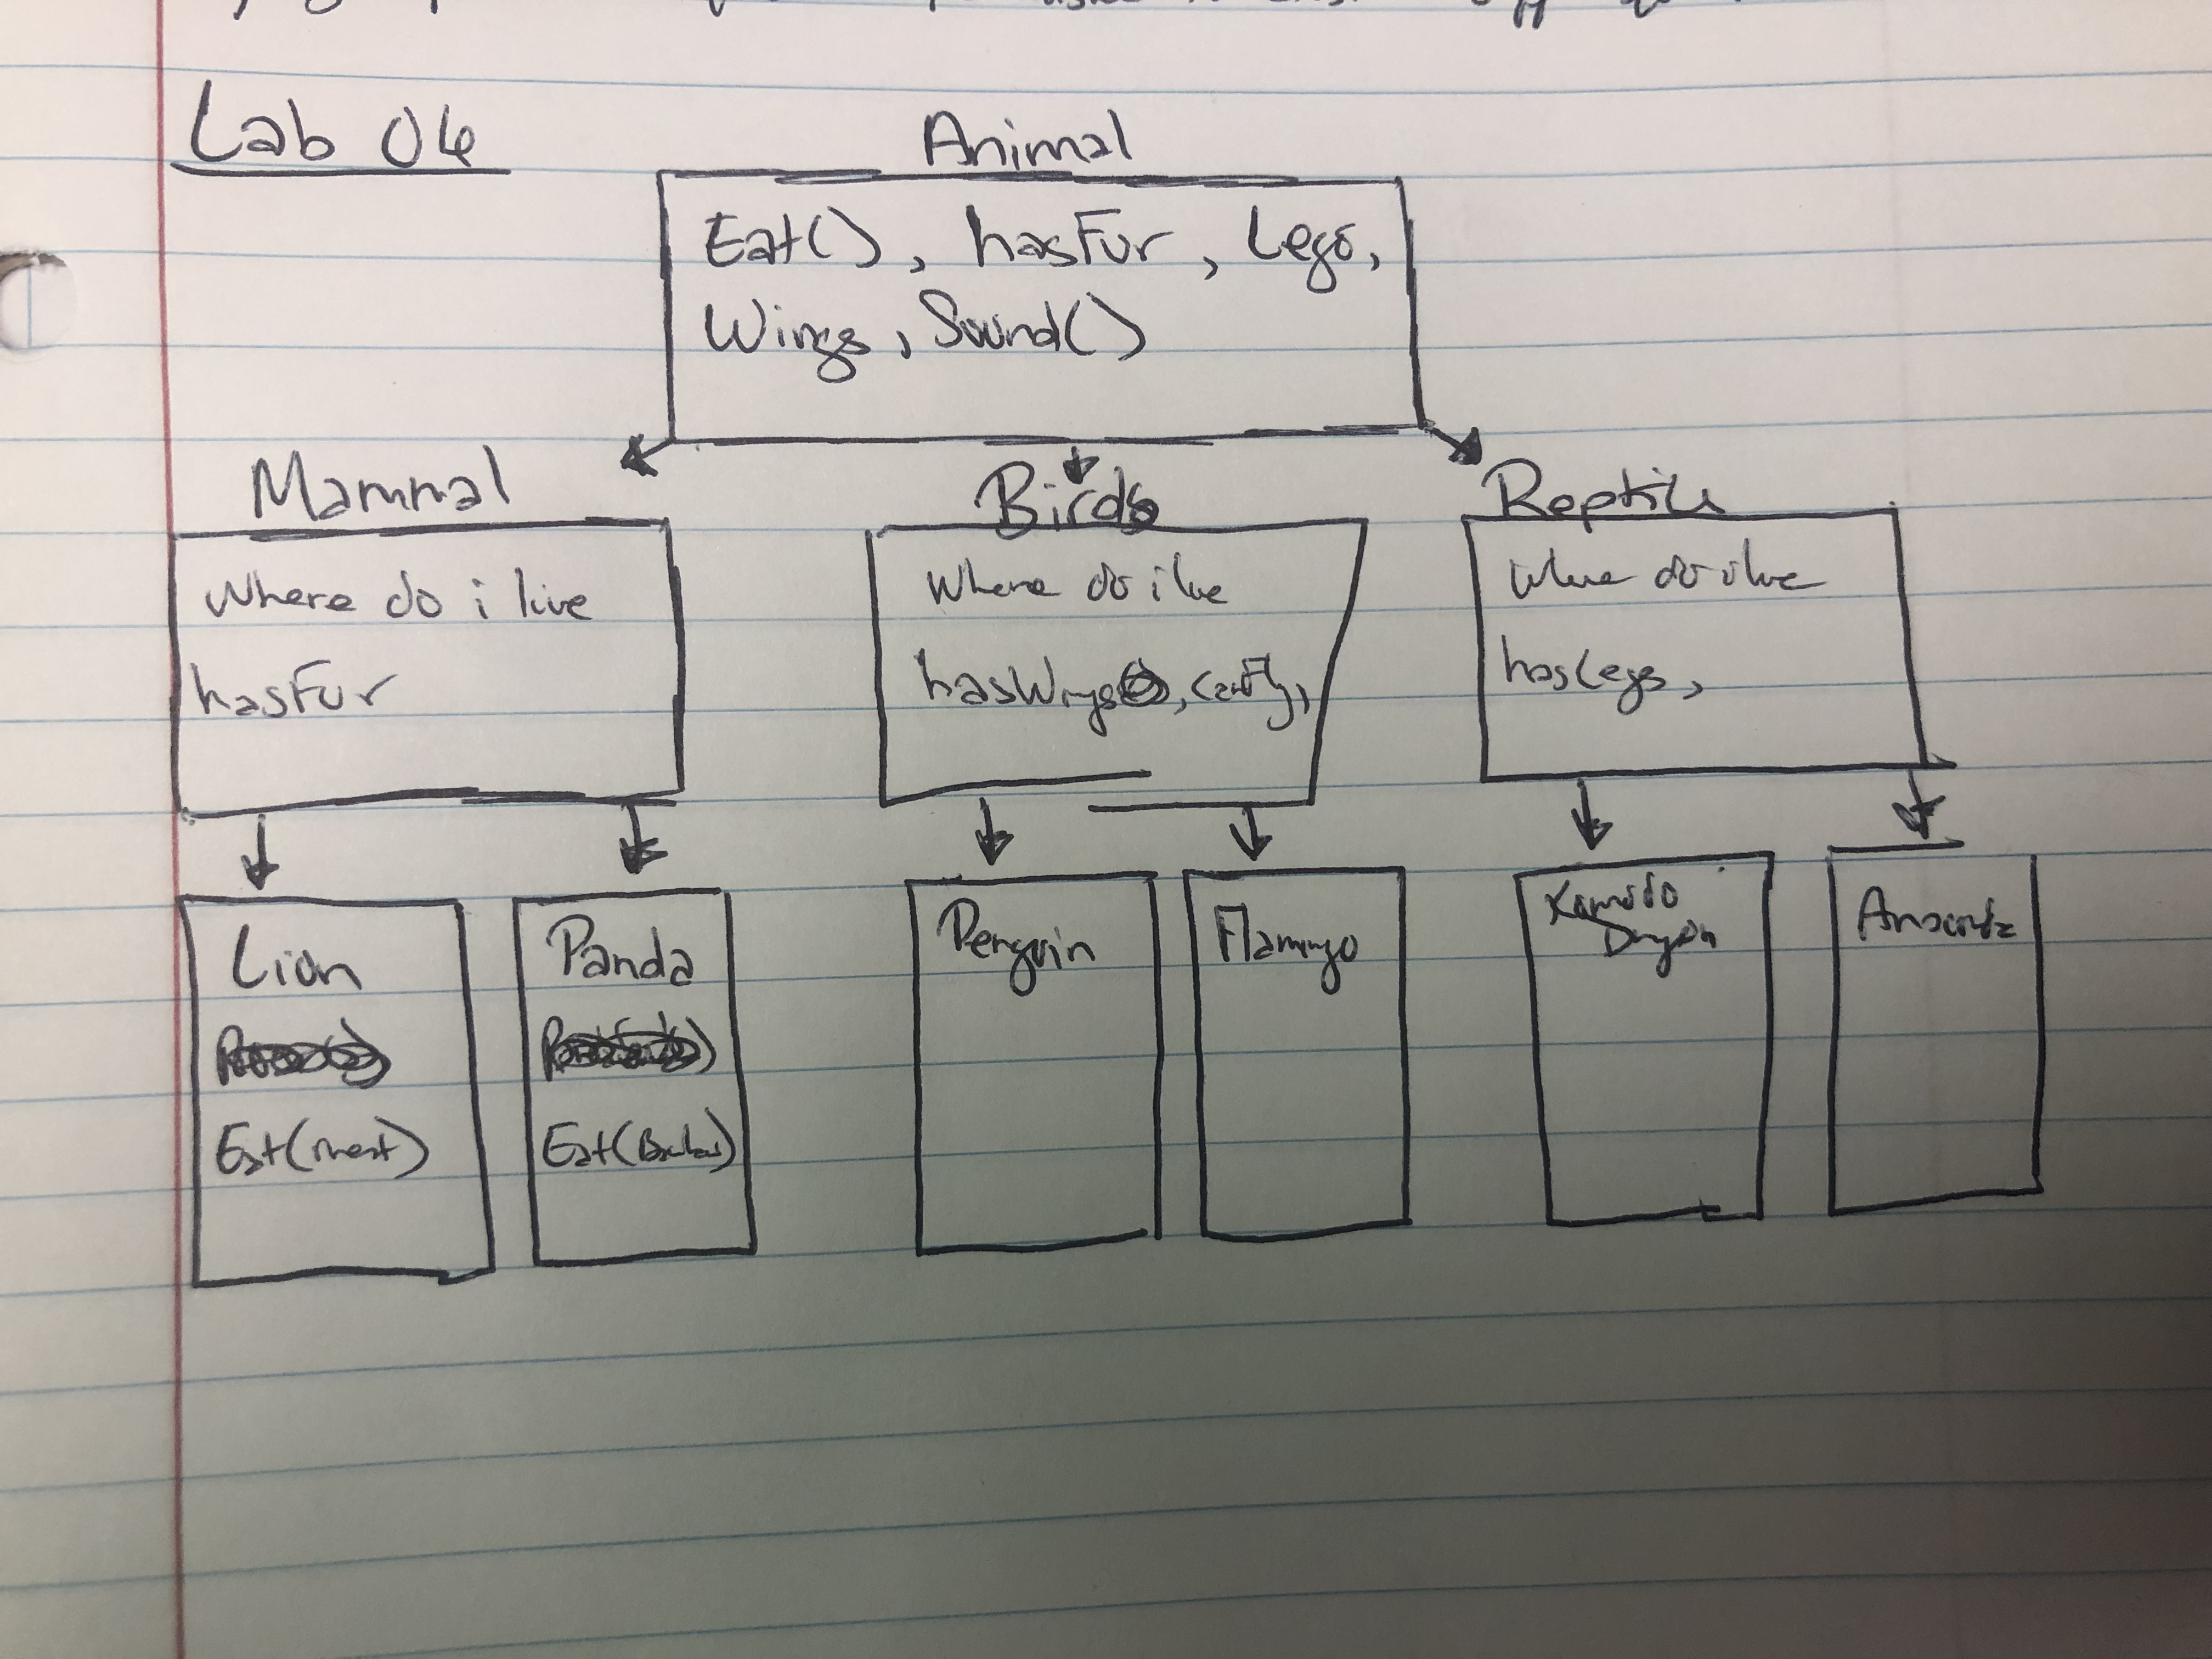 Lab 06
Animal
Eat(), hasFur, Legs,
Wings, Sound()
Mammal
Where do i live
hasFur
Birds
Where do i live
hasWings, canFly,
Reptile
Where do i live
hasLegs,
Lion
Eat(meat)
Panda
Eat(Bamboo)
Penguin
Flamingo
Komodo
Dragon
Anaconda